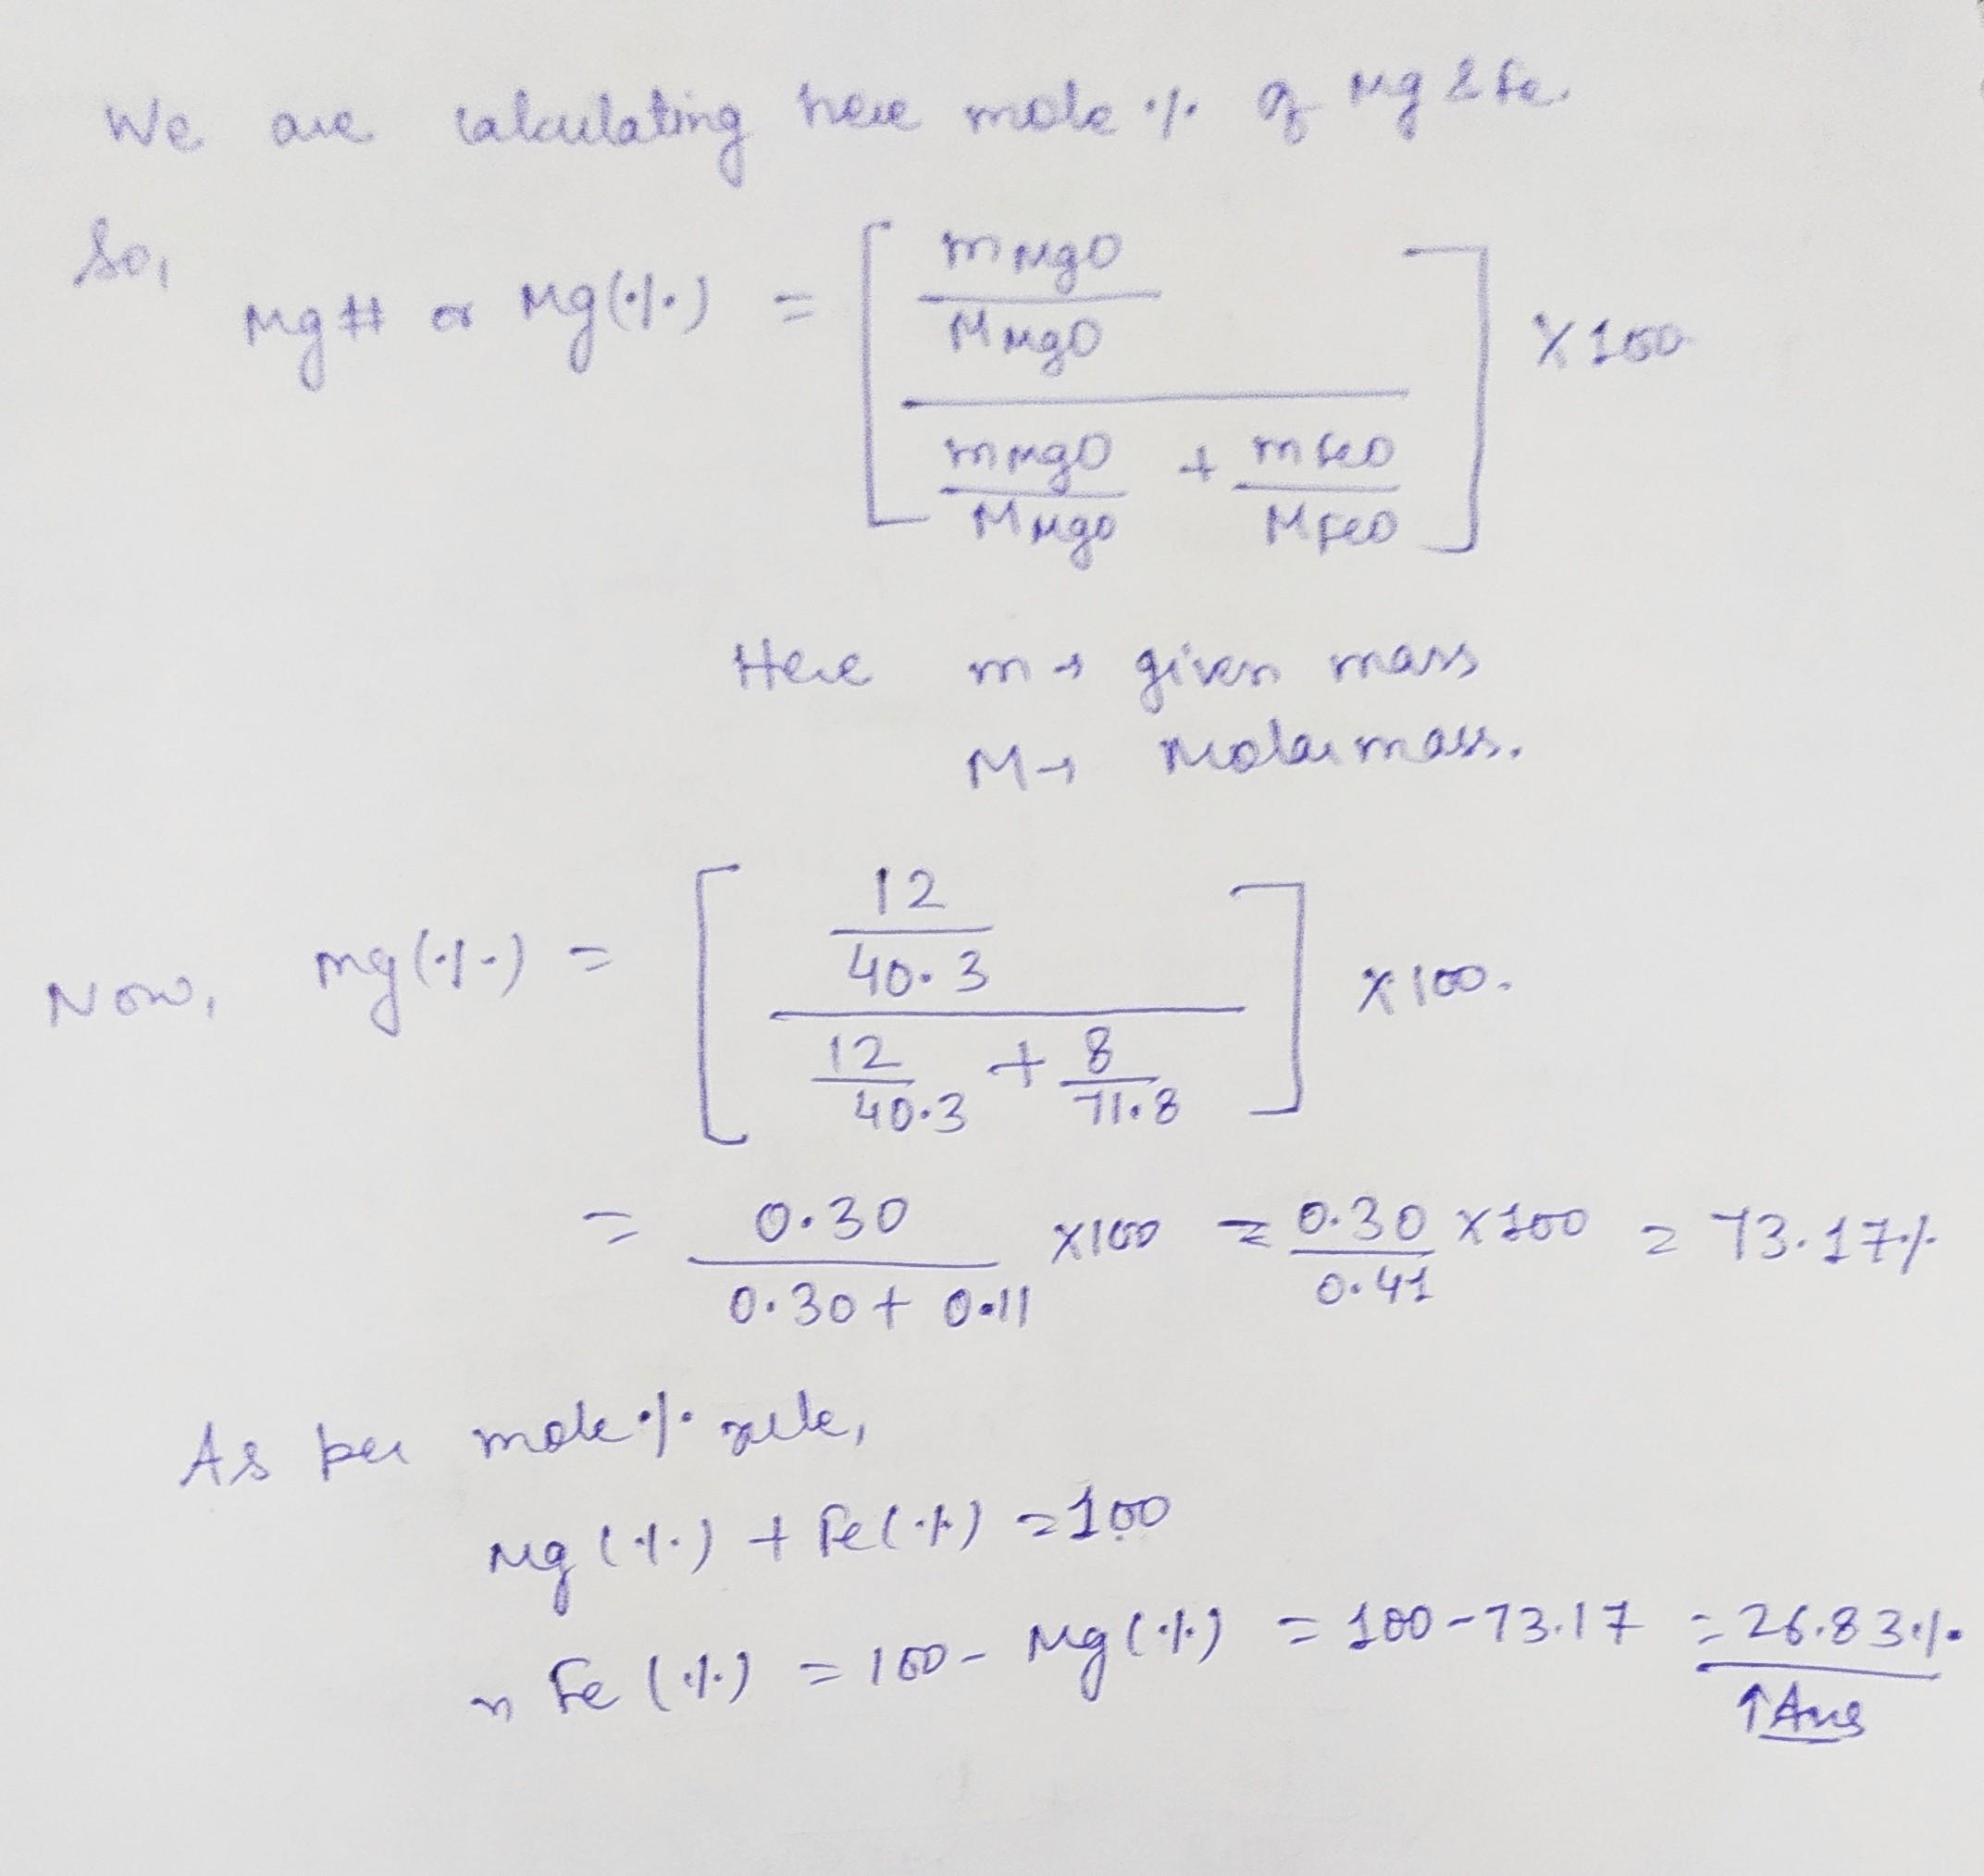 We are calculating here mole % of Mg & Fe.
So,
Mg# or Mg(%) = [ (mMgO / MMgO) / (mMgO / MMgO + mFeO / MFeO) ] × 100
Here m → given mass
M → Molar mass.
Now, Mg(%) = [ (12 / 40.3) / (12 / 40.3 + 8 / 71.8) ] × 100.
= 0.30 / (0.30 + 0.11) × 100 = 0.30 / 0.41 × 100 = 73.17%
As per mole % rule,
Mg(%) + Fe(%) = 100
Fe(%) = 100 - Mg(%) = 100 - 73.17 = 26.83%
↑Ans